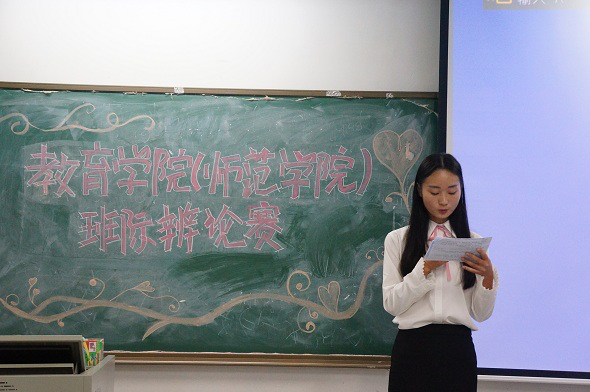 输入
教育学院(师范学院)
班际辨论赛